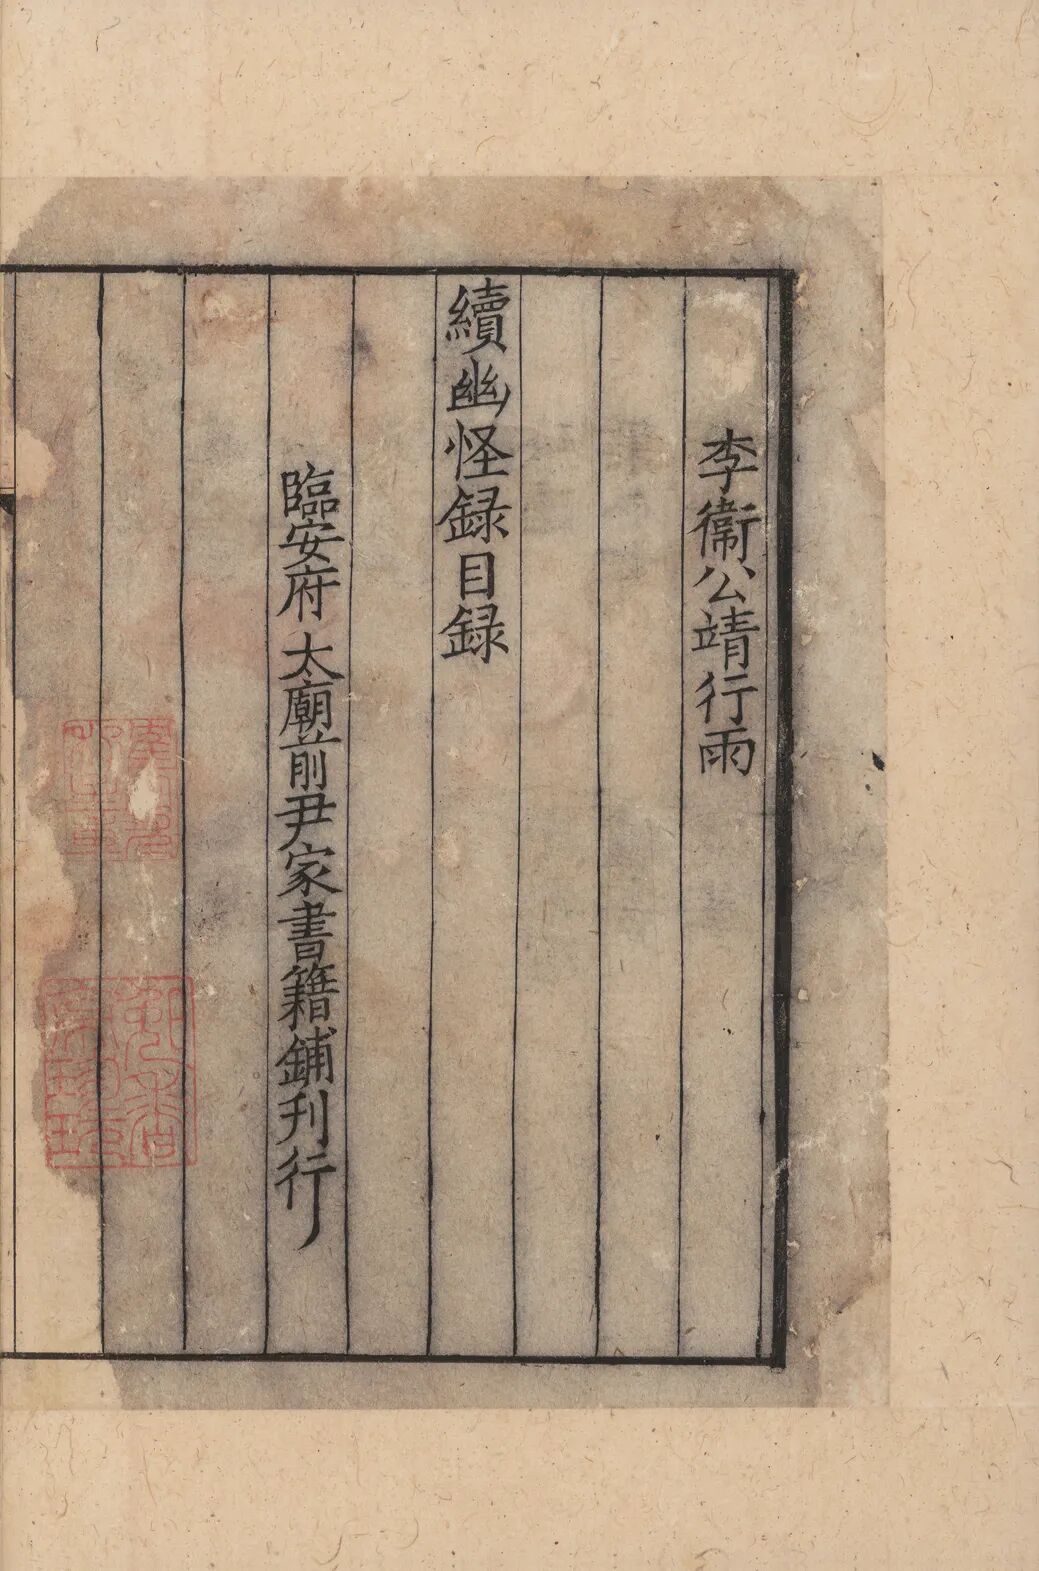 李衞公靖行雨
續幽怪録目録
臨安府太廟前尹家書籍鋪刊行